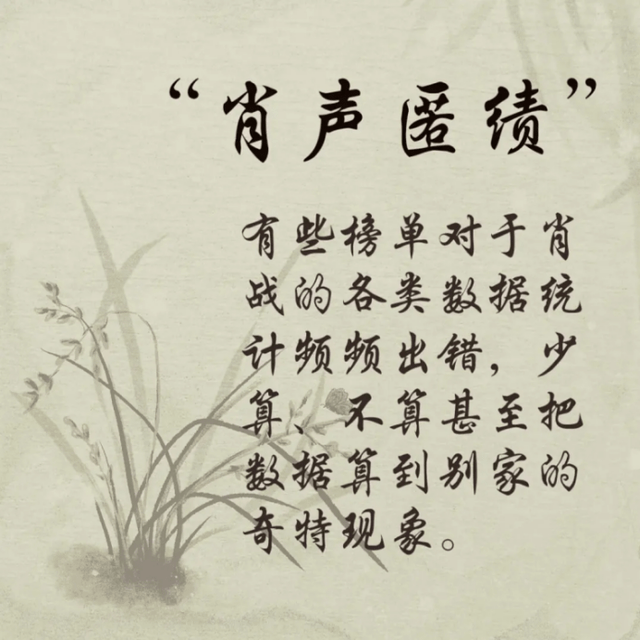 “肖声匿绩”
有些榜单对于肖
战的各类数据统
计频频出错，少
算、不算甚至把
数据算到别家的
奇特现象。